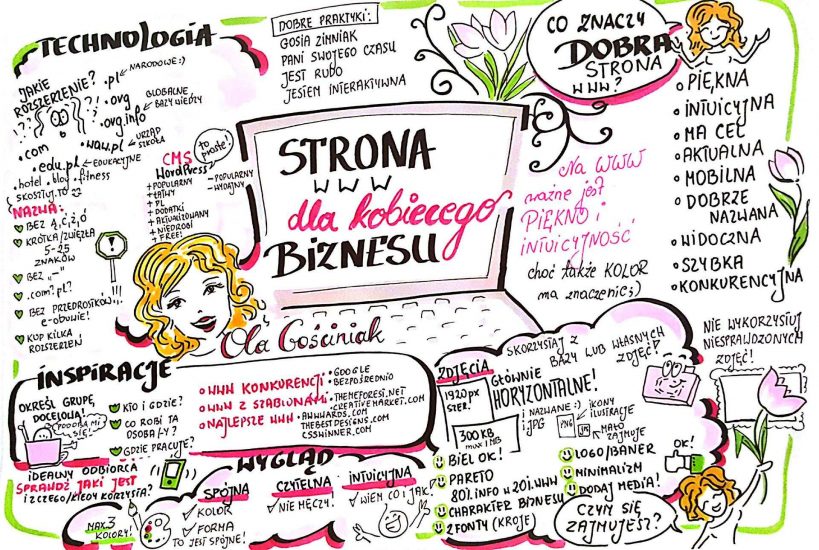 TECHNOLOGIA
JAKIE
ROZSZERZENIE?
.pl
NARODOWE:)
.org
.org.info
GLOBALNE,
BAZY WIEDZY
.com
.waw.pl
URZĄD
SZKOŁA
.edu.pl
EDUKACYJNE
.hotel .blog .fitness
SKOSZTUJ.TO
NAZWA:
BEZ Ą,Ć,Ż,Ó
KRÓTKA/ZWIĘZŁA
5-25
ZNAKÓW
BEZ „-"
.com?.pl?
BEZ PRZEDROSTKÓW!!!
e-obuwie!
KUP KILKA
ROZSZERZEŃ
CMS
WORDPRESS
to proste!
+ POPULARNY
+ ŁATWY
+ PL
+ DODATKI
+ AKTUALIZOWANY
+ NIEDROGI
+ FREE!
- POPULARNY
- WYDAJNY
DOBRE PRAKTYKI:
GOSIA ZIMNIAK
PANI SWOJEGO CZASU
JEST RUDO
JESTEM INTERAKTYWNA
STRONA
WWW
dla kobiecego
BIZNESU
Ola Gościniak
CO ZNACZY
DOBRA
STRONA
WWW?
PIĘKNA
INTUICYJNA
MA CEL
AKTUALNA
MOBILNA
DOBRZE
NAZWANA
WIDOCZNA
SZYBKA
KONKURENCYJNA
Na WWW
ważne jest
PIĘKNO i
INTUICYJNOŚĆ
choć także KOLOR
ma znaczenie;)
INSPIRACJE
OKREŚL GRUPĘ
DOCELOWĄ!
PODOBA MI
SIĘ!
KTO I GDZIE?
CO ROBI TA
OSOBA/-Y?
GDZIE PRACUJE?
WWW KONKURENCJI
GOOGLE
BEZPOŚREDNIO
WWW Z SZABLONAMI
THEMEFOREST.NET
CREATIVEMARKET.COM
NAJLEPSZE WWW
AWWWARDS.COM
THEBESTDESIGNS.COM
CSSWINNER.COM
IDEALNY ODBIORCA
SPRAWDŹ JAKI JEST
I Z CZEGO/KIEDY KORZYSTA?
WYGLĄD
MAX.3
KOLORY!
SPÓJNA
KOLOR
FORMA
TO JEST SPÓJNE!
CZYTELNA
NIE MĘCZY!
INTUICYJNA
WIEM CO I JAK!
ZDJĘCIA
SKORZYSTAJ Z
BAZY LUB WŁASNYCH
ZDJĘĆ!
1920 px
SZER.
GŁÓWNIE
HORYZONTALNE!
300 KB
MAX 1 MB
i NAZWANE :)
i.JPG
PNG
IKONY
ILUSTRACJE
MAŁO
ZAJMUJE
BIEL OK!
PARETO
80%.INFO W 20%.WWW
CHARAKTER BIZNESU
2 FONTY (KROJE)
LOGO/BANER
MINIMALIZM
DODAJ MEDIA!
OK!
NIE WYKORZYSTUJ
NIESPRAWDZONYCH
ZDJĘĆ!
CZYM SIĘ
ZAJMUJESZ?